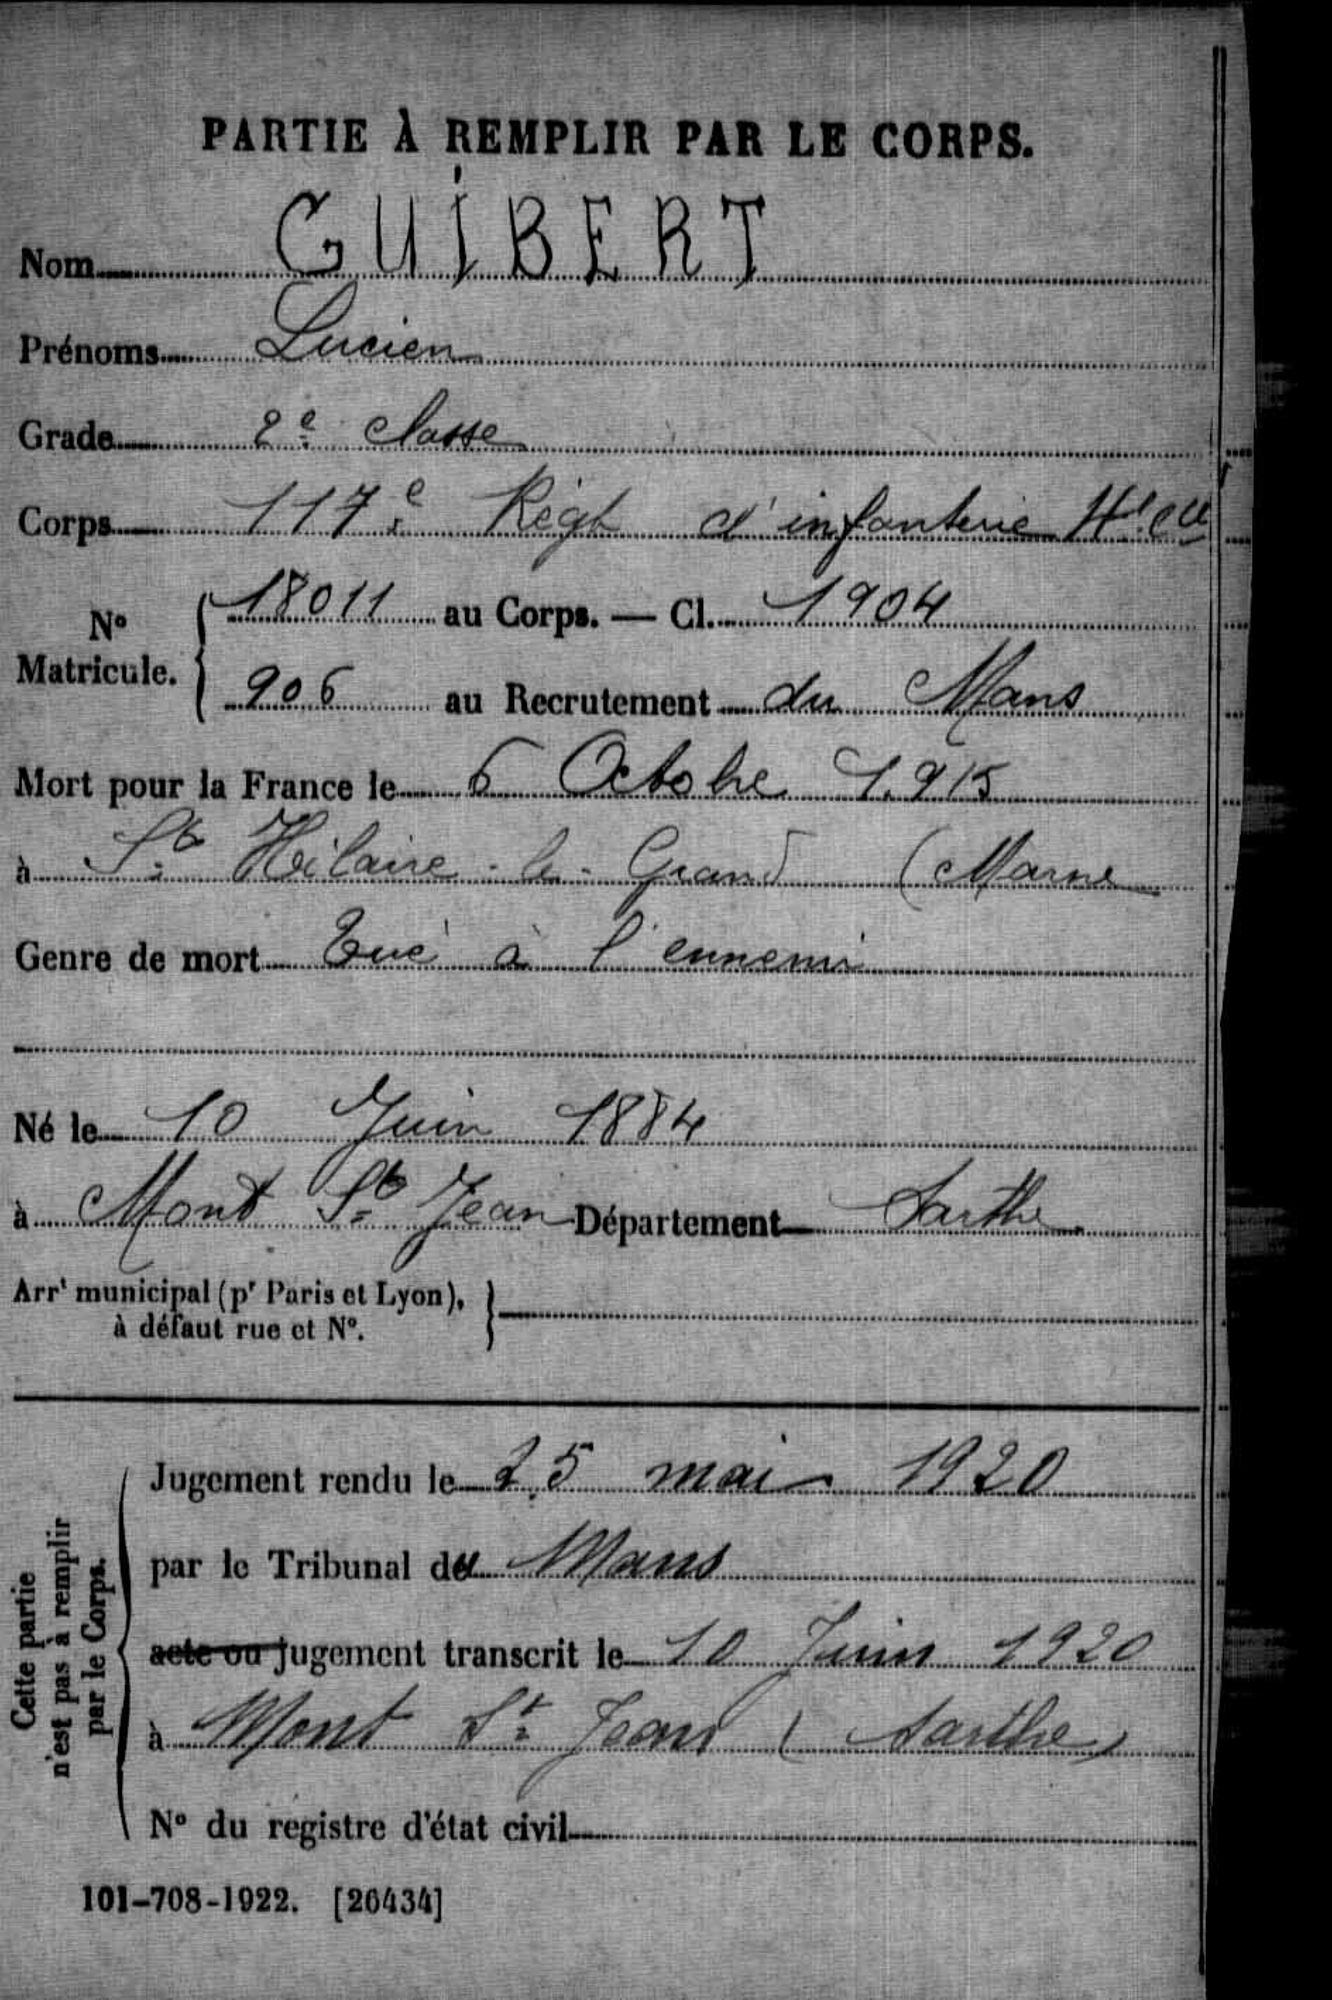 PARTIE À REMPLIR PAR LE CORPS.
Nom GUIBERT
Prénoms Lucien
Grade 2e classe
Corps 117e Régt d'infanterie
N° Matricule. { 18011 au Corps. — Cl. 1904
906 au Recrutement du Mans
Mort pour la France le 6 Octobre 1915
à St Hilaire-le-Grand (Marne
Genre de mort Tué à l'ennemi
Né le 10 Juin 1884
à Mont St Jean Département Sarthe
Arrt municipal (pr Paris et Lyon), }
à défaut rue et N°.
Cette partie
n'est pas à remplir
par le Corps.
Jugement rendu le 25 mai 1920
par le Tribunal du Mans
acte ou jugement transcrit le 10 Juin 1920
à Mont St Jean (Sarthe)
N° du registre d'état civil
101-708-1922. [26434]